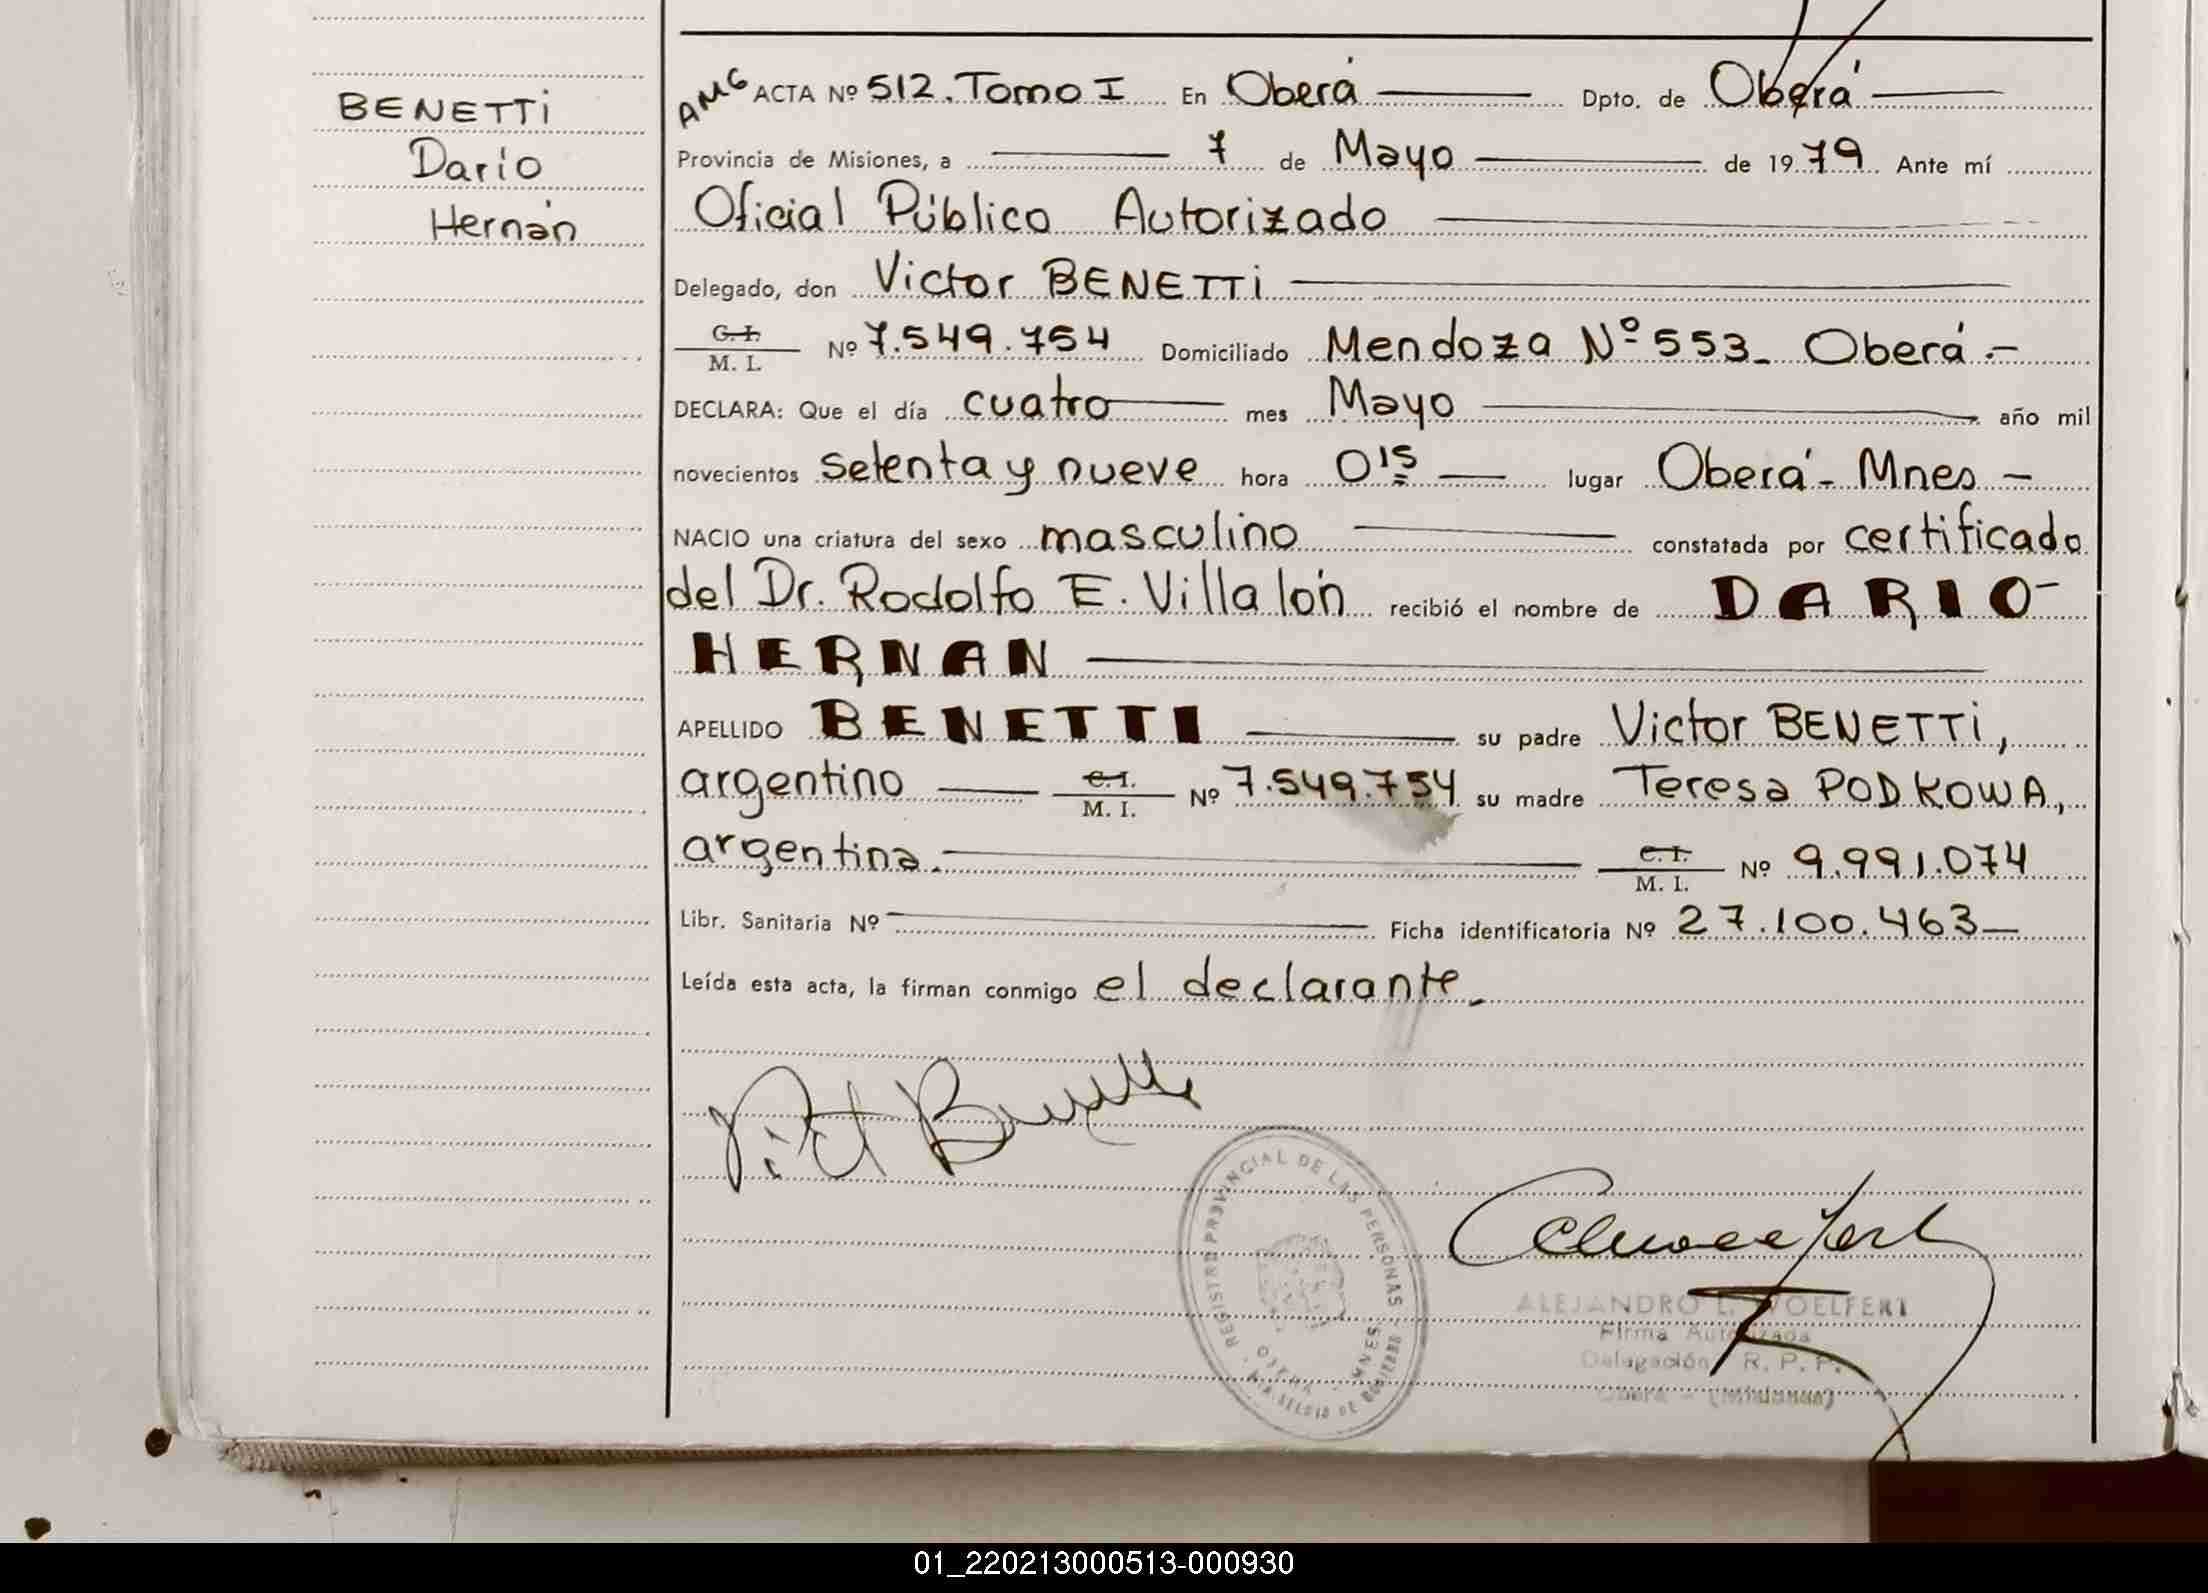 BENETTi
Darío
Hernán
AMG ACTA Nº 512. Tomo I En Oberá Dpto. de Oberá
Provincia de Misiones, a 7 de Mayo de 1979 Ante mí
Oficial Público Autorizado
Delegado, don Victor BENETTi
C. I.
M. I. Nº 7.549.754 Domiciliado Mendoza Nº 553_ Oberá.-
DECLARA: Que el día cuatro mes Mayo año mil
novecientos setenta y nueve hora 0 15 lugar Oberá - Mnes -
NACIO una criatura del sexo masculino constatada por certificado
del Dr. Rodolfo E. Villalón recibió el nombre de DARIO-
HERNAN
APELLIDO BENETTI su padre Victor BENETTi,
argentino C. I. M. I. Nº 7.549.754 su madre Teresa PODKOWA,
argentina. C. I. M. I. Nº 9.991.074
Libr. Sanitaria Nº Ficha identificatoria Nº 27.100.463-
Leída esta acta, la firman conmigo el declarante.
REGISTRO PROVINCIAL DE LAS PERSONAS
MNES.
ALEJANDRO L. WOELFERT
Firma Autorizada
Delegación R. P. P.
Oberá - (Misiones)
01_220213000513-000930